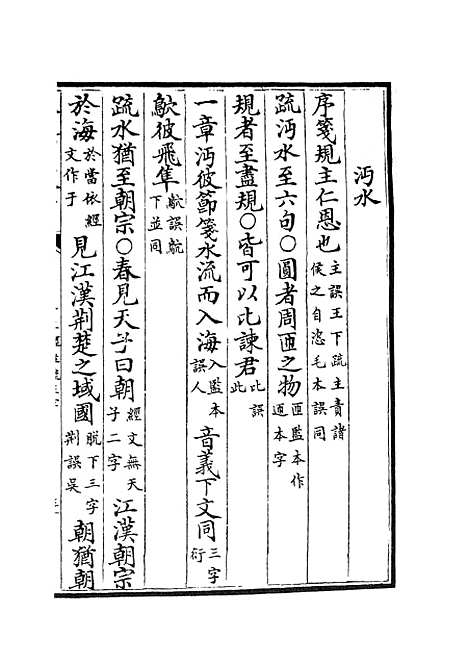 沔水
序箋規主仁恩也主誤王下疏主責諸侯之自恣毛本誤同
疏沔水至六句○圓者周匝之物匝監本作迊本字
規者至盡規○皆可以比諫君比誤此
一章沔彼節箋水流而入海入監本誤人音義下文同三字衍
鴥彼飛隼鴥誤鴧下並同
疏水猶至朝宗○春見天子曰朝經文無天子二字江漢朝宗
於海於當依經文作于見江漢荆楚之域國脫下三字荆誤吳朝猶朝